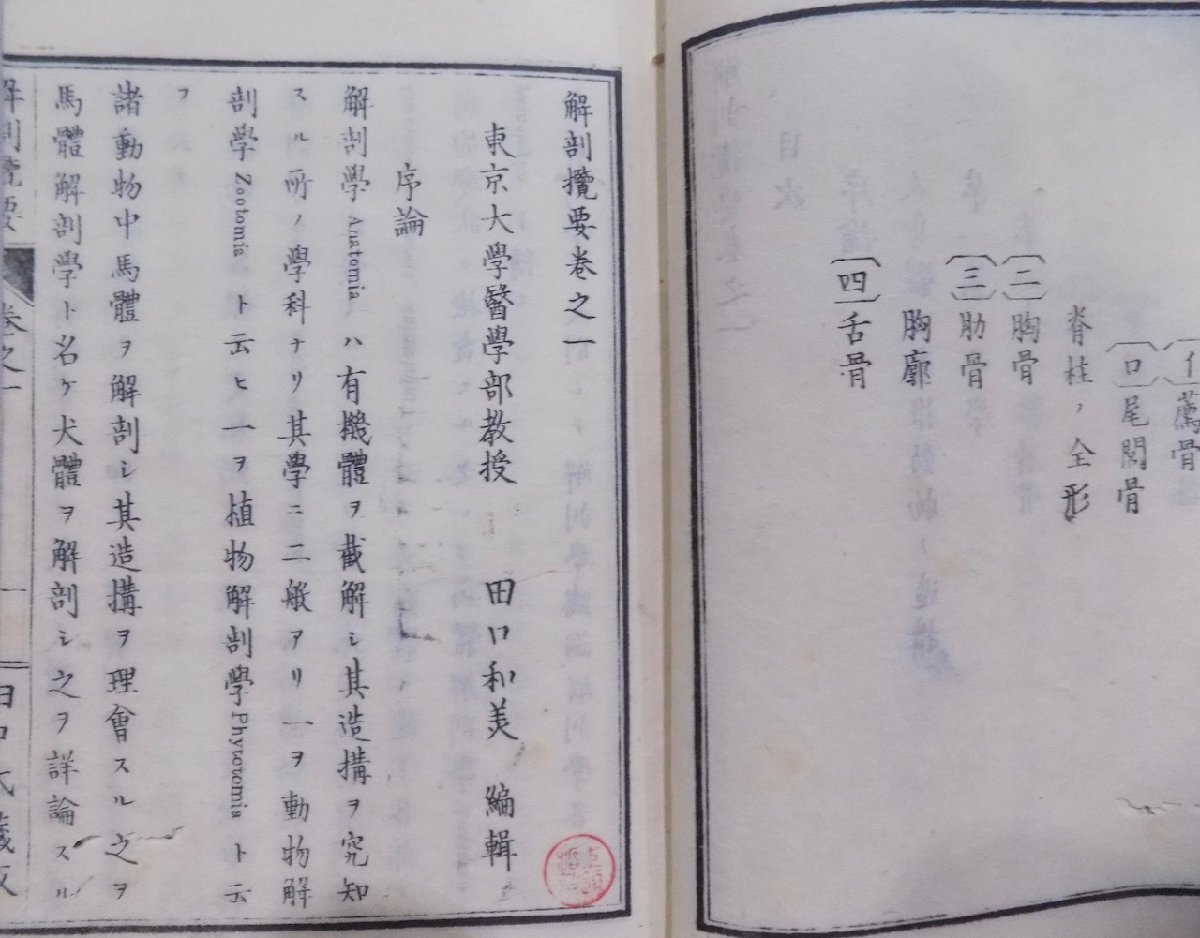 〔イ〕薦骨
〔ロ〕尾閭骨
脊柱ノ全形
〔二〕胸骨
〔三〕肋骨
胸廓
〔四〕舌骨
解剖攬要卷之一
東京大學醫學部教授 田口和美 編輯
序論
解剖學 Anatomia ハ有機體ヲ截解シ其造搆ヲ究知
スル所ノ學科ナリ其學ニ二般アリ一ヲ動物解
剖學 Zootomia ト云ヒ一ヲ植物解剖學 Phytotomia ト云
フ
諸動物中馬體ヲ解剖シ其造搆ヲ理會スル之ヲ
馬體解剖學ト名ケ犬體ヲ解剖シ之ヲ詳論スル
解剖攬要 卷之一 一 田口氏藏版